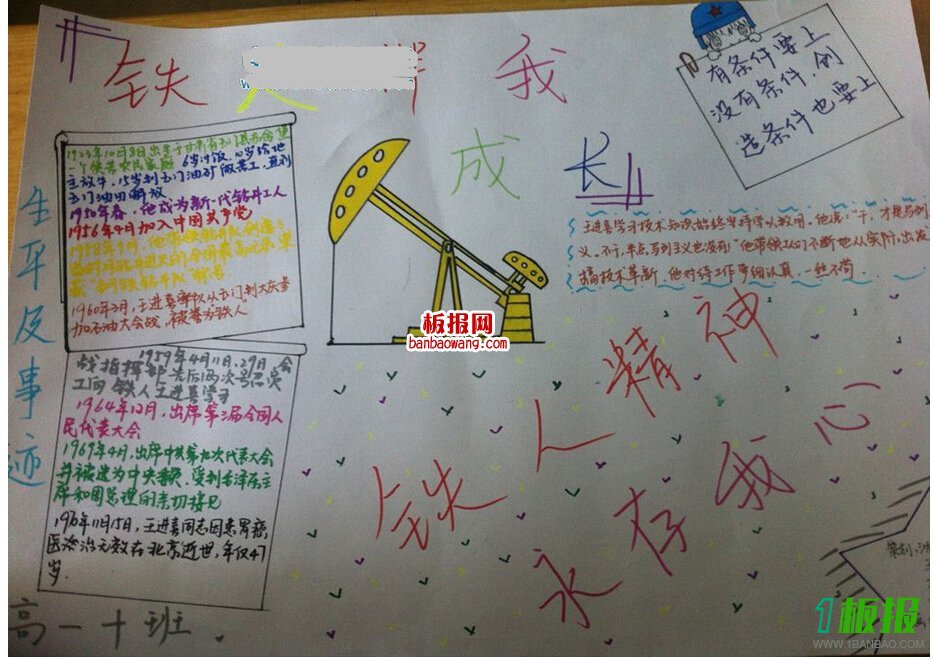 铁 人 伴 我
成 长
有条件要上
没有条件，创
造条件也要上
生平及事迹
1923年10月8日出生于甘肃省玉门县赤金堡
一个贫苦农民家庭 6岁讨饭，10岁给地
主放牛，15岁到玉门油矿做苦工，直到
玉门油田解放
1950年春，他成为新一代钻井工人
1956年4月加入中国共产党
1960年3月，王进喜率队从玉门到大庆参
加石油大会战，被誉为"铁人"
王进喜学习技术知识始终坚持学以致用，他说："干，才是马列主
义，不干，半点马列主义也没有"他带领工人们不断地从实际出发
搞技术革新，他对待工作事细认真，一丝不苟
板报网
banbaowang.com
1959年4月11日、29日 会
战指挥部先后两次号召
工向铁人王进喜学习
1964年12月，出席第三届全国人
民代表大会
1969年4月，出席中共第九次代表大会
并被选为中央委员，受到毛泽东主
席和周总理的亲切接见
1970年11月15日，王进喜同志因患胃癌
医治无效在北京逝世，年仅47
岁.
铁人精神
永存我心
高一十班
1板报
WWW.1BANBAO.COM